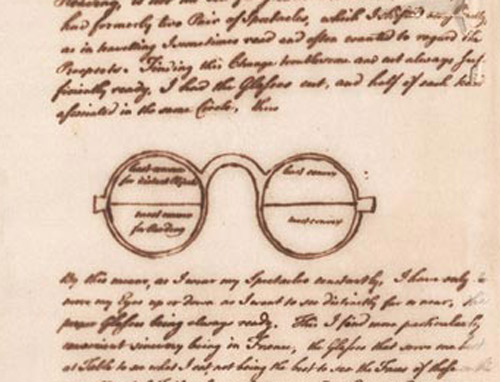 had formerly two Pair of Spectacles, which I shifted
as in travelling I sometimes read and often wanted to regard the
Prospects. Finding this Change troublesome and not always suf-
ficiently ready, I had the Glasses cut, and half of each kind
associated in the same Circle, thus
least convex
for distant Objects
most convex
for Reading
least convex
most convex
By this means, as I wear my Spectacles constantly, I have only to
move my Eyes up or down as I want to see distinctly far or near, the
proper Glasses being always ready. This I find more particularly
convenient since my being in France, the Glasses that serve me best
at Table to see what I eat, not being the best to see the Faces of those